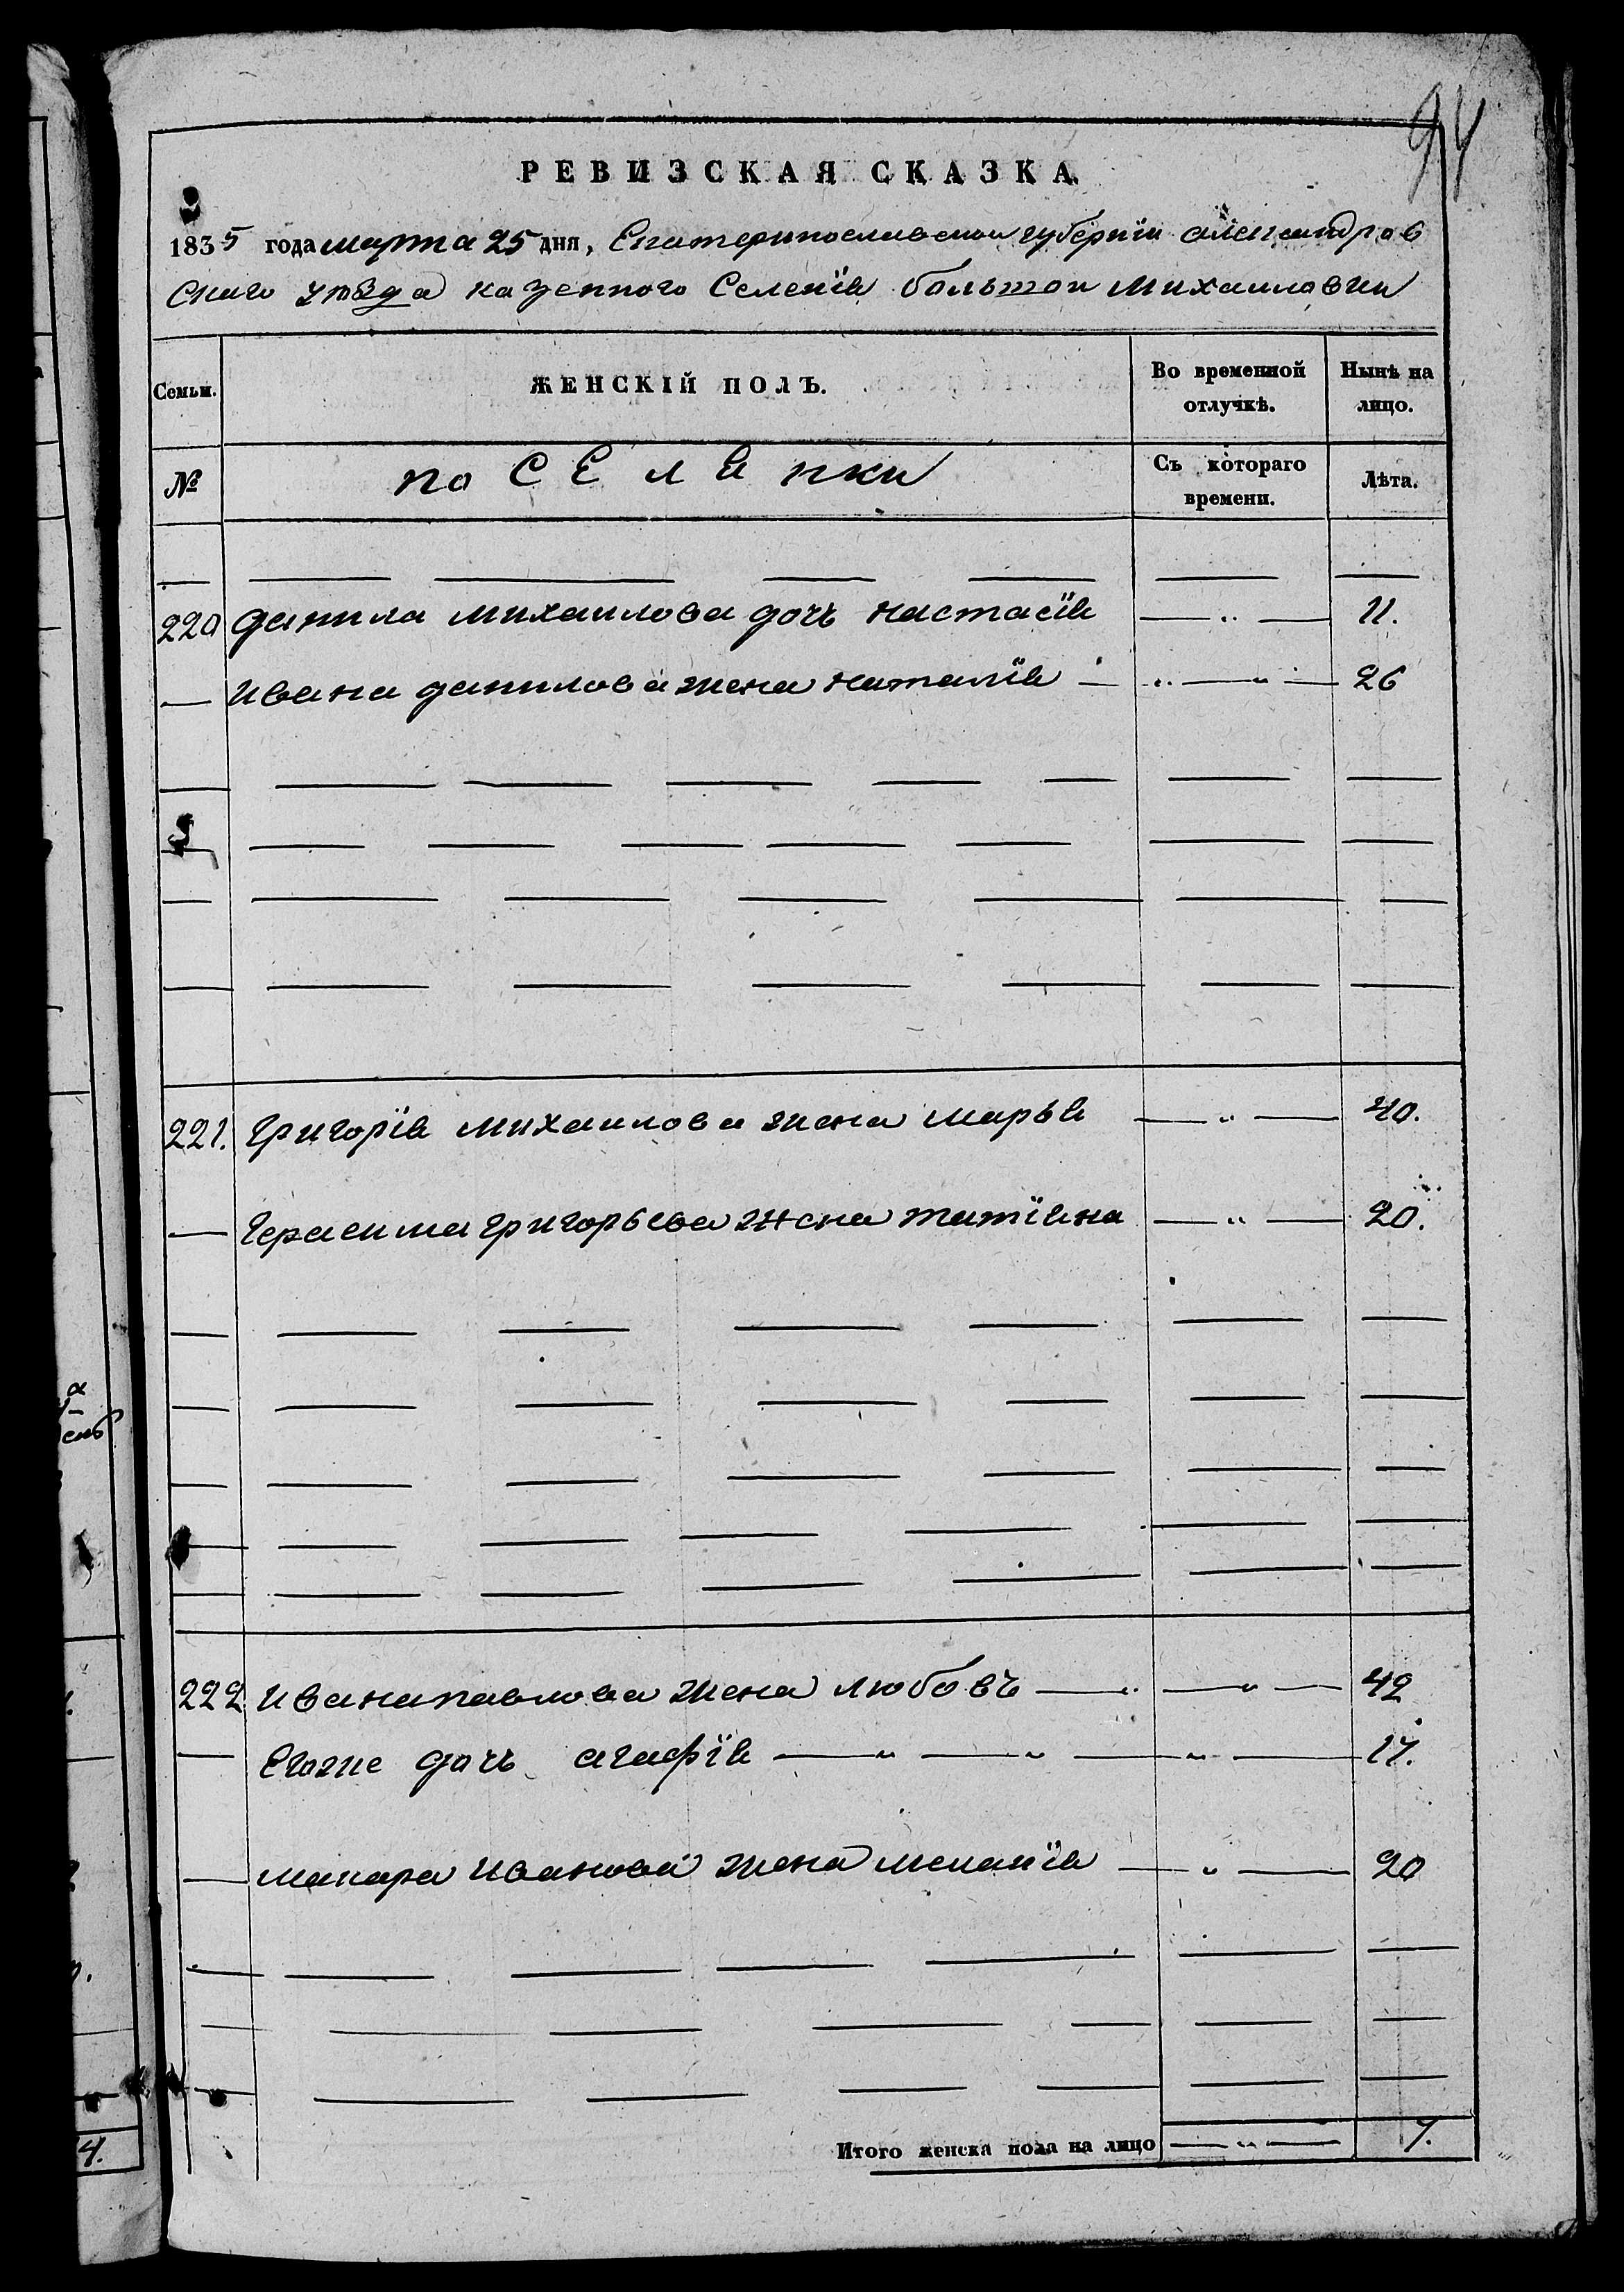 94
РЕВИЗСКАЯ СКАЗКА.
1835 года марта 25 дня, Екатеринославской губернїи александров
ского уѣзда казенного Селенїя большой михаиловки
Семьи. ЖЕНСКІЙ ПОЛЪ. Во временной отлучкѣ. Нынѣ на лицо.
№ поСЕлянки Съ котораго времени. Лѣта.
220 данила михаилова дочь настасїя — „ — 11.
— Ивана данилова жена наталїя — „ — „ — 26
221. Григорїя михаилова жена марья — „ — 40.
— Герасима григорьева жена татїяна — „ — 20.
222 ивана павлова жена любовь — „ — „ — 42
— Егоже дочь агафїя — „ — „ — „ — 17.
— макара иванова жена меланїя — „ — 20
Итого женска пола на лицо — „ — 7.